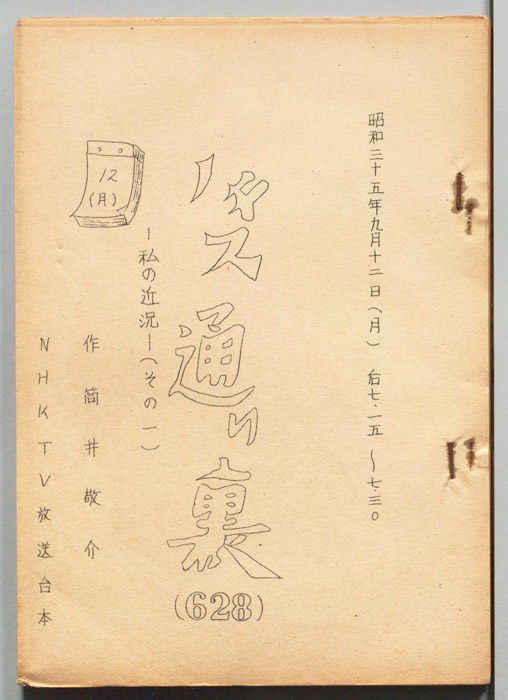 昭和三十五年九月十二日（月） 后七・一五〜七・三〇
バス通り裏
(628)
―私の近況―（その一）
12
(月)
作 筒井敬介
NHKTV放送台本